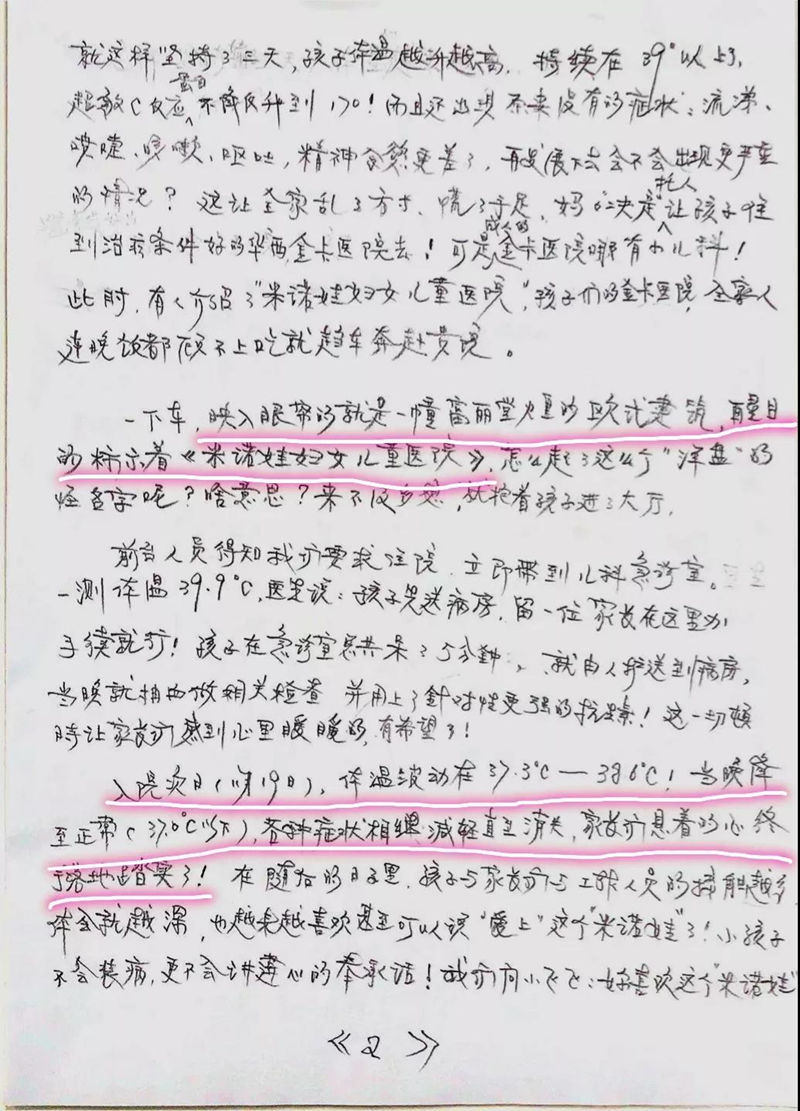 就这样坚持了三天,孩子体温越升越高,持续在39°以上,
超敏C反应蛋白不降反升到170!而且还出现原来没有的症状:流涕、
喷嚏、咳嗽、呕吐,精神食欲更差了,再发展下去会不会出现更严重
的情况?这让全家乱了方寸、慌了手足,妈妈决定托人让孩子住
到治疗条件好的华西金卡医院去!可是成人的金卡医院哪有小儿科!
此时,有人介绍了"米诺娃妇女儿童医院",孩子们的金卡医院,全家人
连晚饭都顾不上吃就趋车奔赴贵院。
一下车,映入眼帘的就是一幢富丽堂煌的欧式建筑,醒目
的标示着《米诺娃妇女儿童医院》,怎么起了这么个"洋盘"的
怪名字呢?啥意思?来不及多想,就抱着孩子进了大厅。
前台人员得知我们要求住院,立即带到儿科急诊室。
一测体温39.9°C,医生说:孩子先送病房,留一位家长在这里办
手续就行!孩子在急诊室总共呆了5分钟,就由人护送到病房,
当晚就抽血做相关检查 并用上了针对性更强的抗菌素!这一切顿
时让家长们感到心里暖暖的,有希望了!
入院次日(19日),体温波动在37.3°C—38.6°C!当晚降
至正常(37.0°C以下),各种症状相继减轻直至消失,家长们悬着的心终
于落地踏实了!在随后的日子里,孩子与家长们与工作人员的接触越多
体会就越深,也越来越喜欢甚至可以说"爱上"这个"米诺娃"了!小孩子
不会装病,更不会讲违心的奉承话!我们问小飞飞:好喜欢这个"米诺娃"
《2》